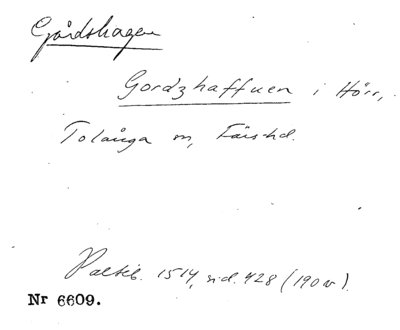 Gårdshagen
Gordzhaffuen i Hörr,
Tolånga sn, Färshd.
Palteb. 1514, sid. 428 (190 v).
Nr 6609.